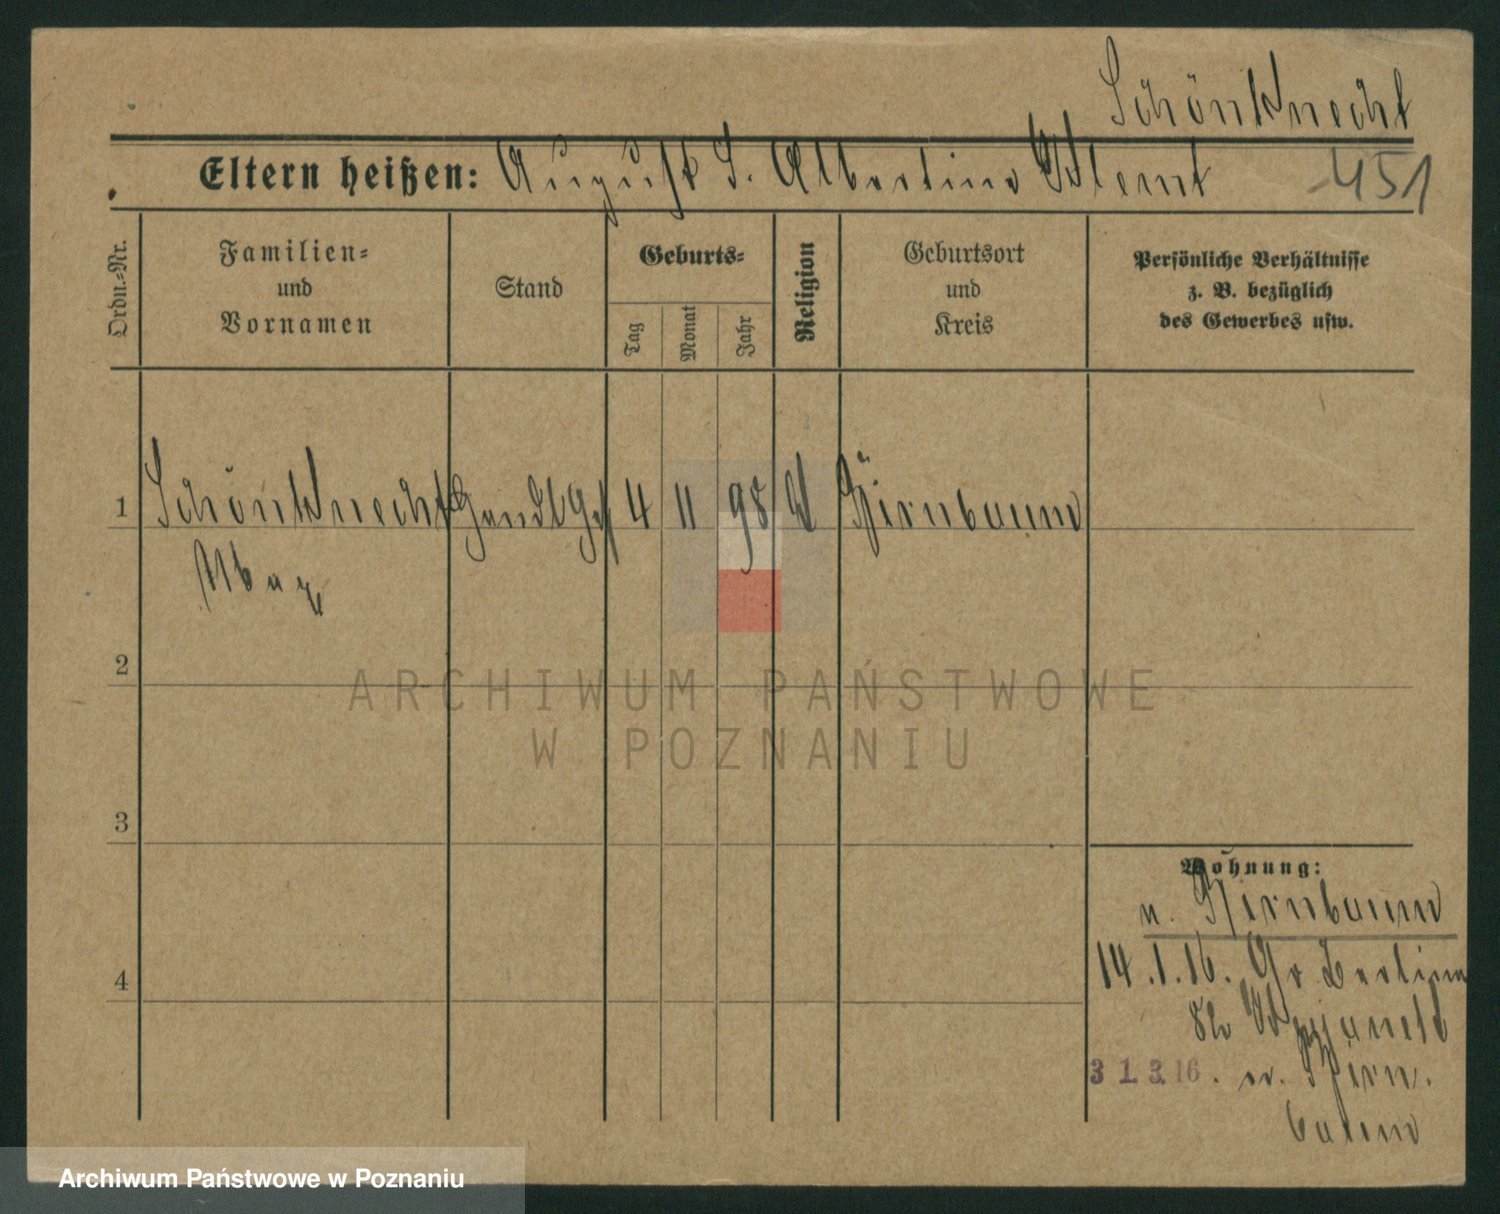 Schönknecht
Eltern heißen: August S. Albertine Klemt
451
Ordn.-Nr.
Familien-
und
Vornamen
Stand
Geburts-
Tag
Monat
Jahr
Religion
Geburtsort
und
Kreis
Persönliche Verhältnisse
z. B. bezüglich
des Gewerbes usw.
1 Schönknecht Handl Geh 4 11 98 Birnbaum
Max
2
3
4
Wohnung:
n. Birnbaum
14.1.16. Gr Berliner
82
31.3.16. n. Birn-
baum
ARCHIWUM PAŃSTWOWE
W POZNANIU
Archiwum Państwowe w Poznaniu